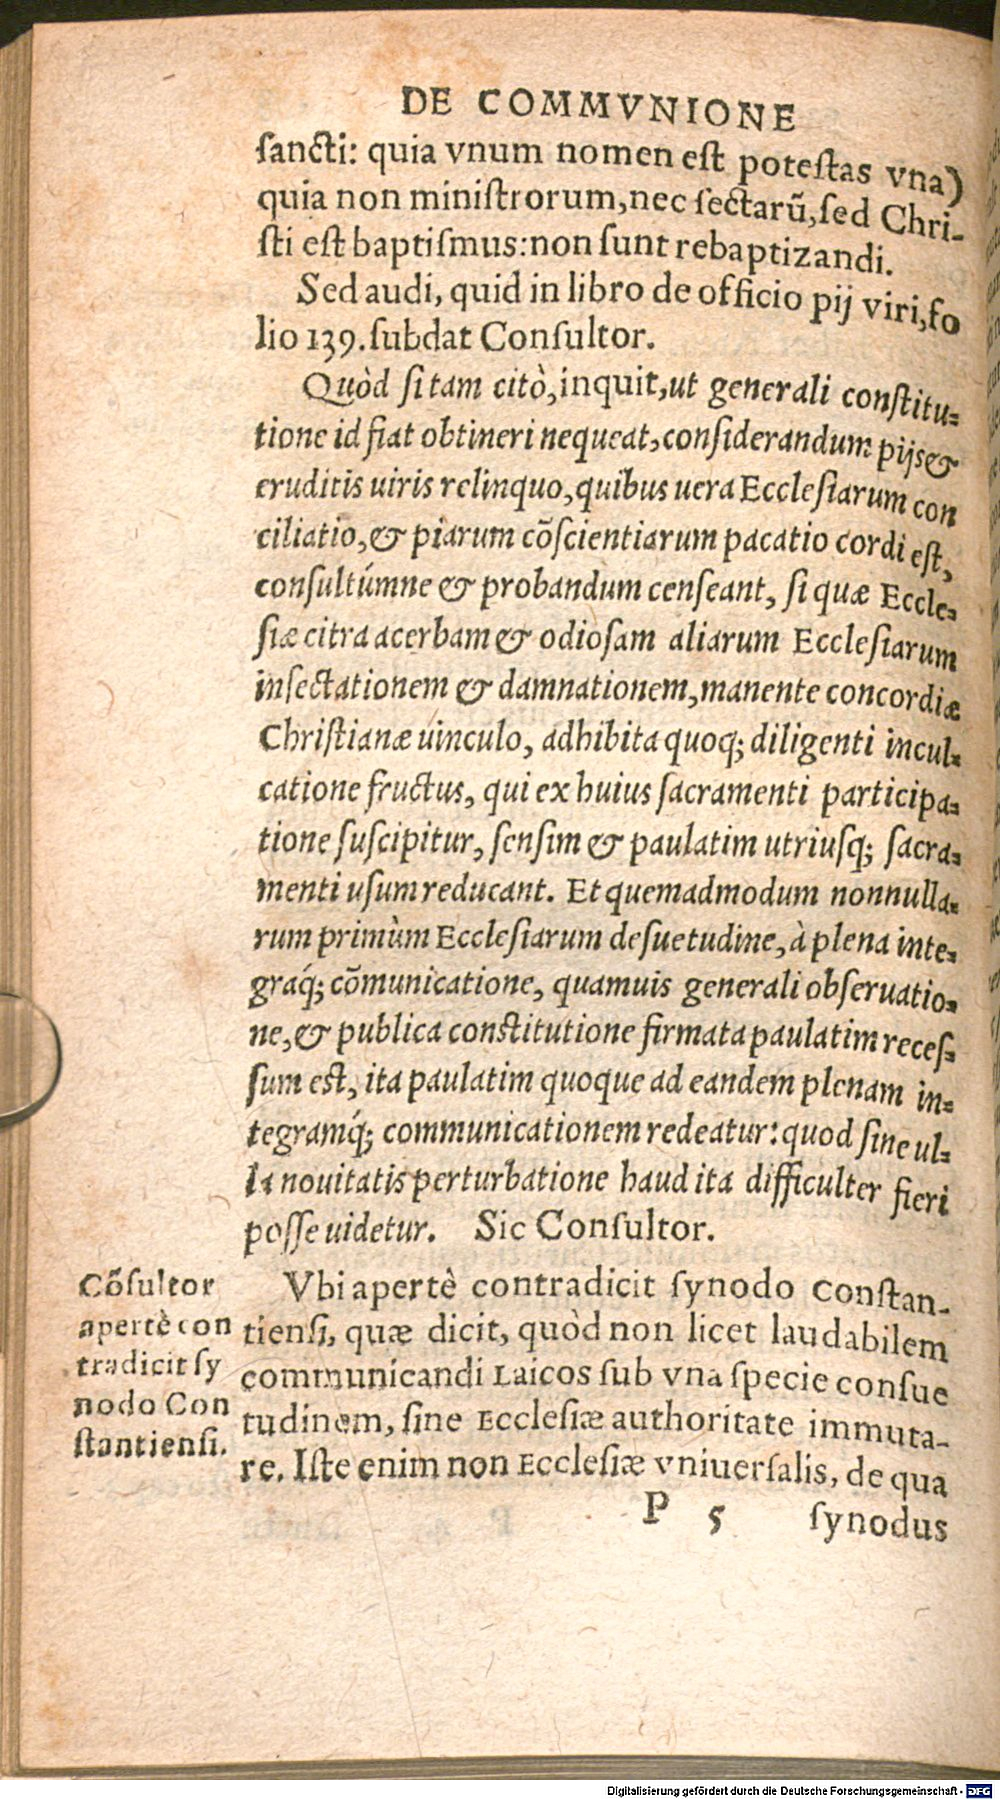 DE COMMVNIONE
ſancti: quia vnum nomen eſt poteſtas vna)
quia non miniſtrorum, nec ſectarũ, ſed Chri-
ſti eſt baptiſmus: non ſunt rebaptizandi.
Sed audi, quid in libro de officio pij viri, fo
lio 139. ſubdat Conſultor.
Quòd ſi tam citò, inquit, ut generali conſtitu-
tione id fiat obtineri nequeat, conſiderandum pijs &
eruditis uiris relinquo, quibus uera Eccleſiarum con
ciliatio, & piarum cõſcientiarum pacatio cordi eſt,
conſultúmne & probandum cenſeant, ſi quæ Eccle-
ſiæ citra acerbam & odioſam aliarum Eccleſiarum
inſectationem & damnationem, manente concordiæ
Chriſtianæ uinculo, adhibita quoq; diligenti incul-
catione fructus, qui ex huius ſacramenti participa-
tione ſuſcipitur, ſenſim & paulatim utriuſq; ſacra-
menti uſum reducant. Et quemadmodum nonnulla-
rum primùm Eccleſiarum deſuetudine, à plena inte-
graq́; cõmunicatione, quamuis generali obſeruatio-
ne, & publica conſtitutione firmata paulatim receſ-
ſum eſt, ita paulatim quoque ad eandem plenam in-
tegramq́; communicationem redeatur: quod ſine ul-
la nouitatis perturbatione haud ita difficulter fieri
poſſe uidetur. Sic Conſultor.
Vbi apertè contradicit ſynodo Conſtan-
tienſi, quæ dicit, quòd non licet laudabilem
communicandi Laicos ſub vna ſpecie conſue
tudinem, ſine Eccleſiæ authoritate immuta-
re. Iſte enim non Eccleſiæ vniuerſalis, de qua
P 5 ſynodus
Cõſultor
apertè con
tradicit ſy
nodo Con
ſtantienſi.
Digitalisierung gefördert durch die Deutsche Forschungsgemeinschaft - DFG